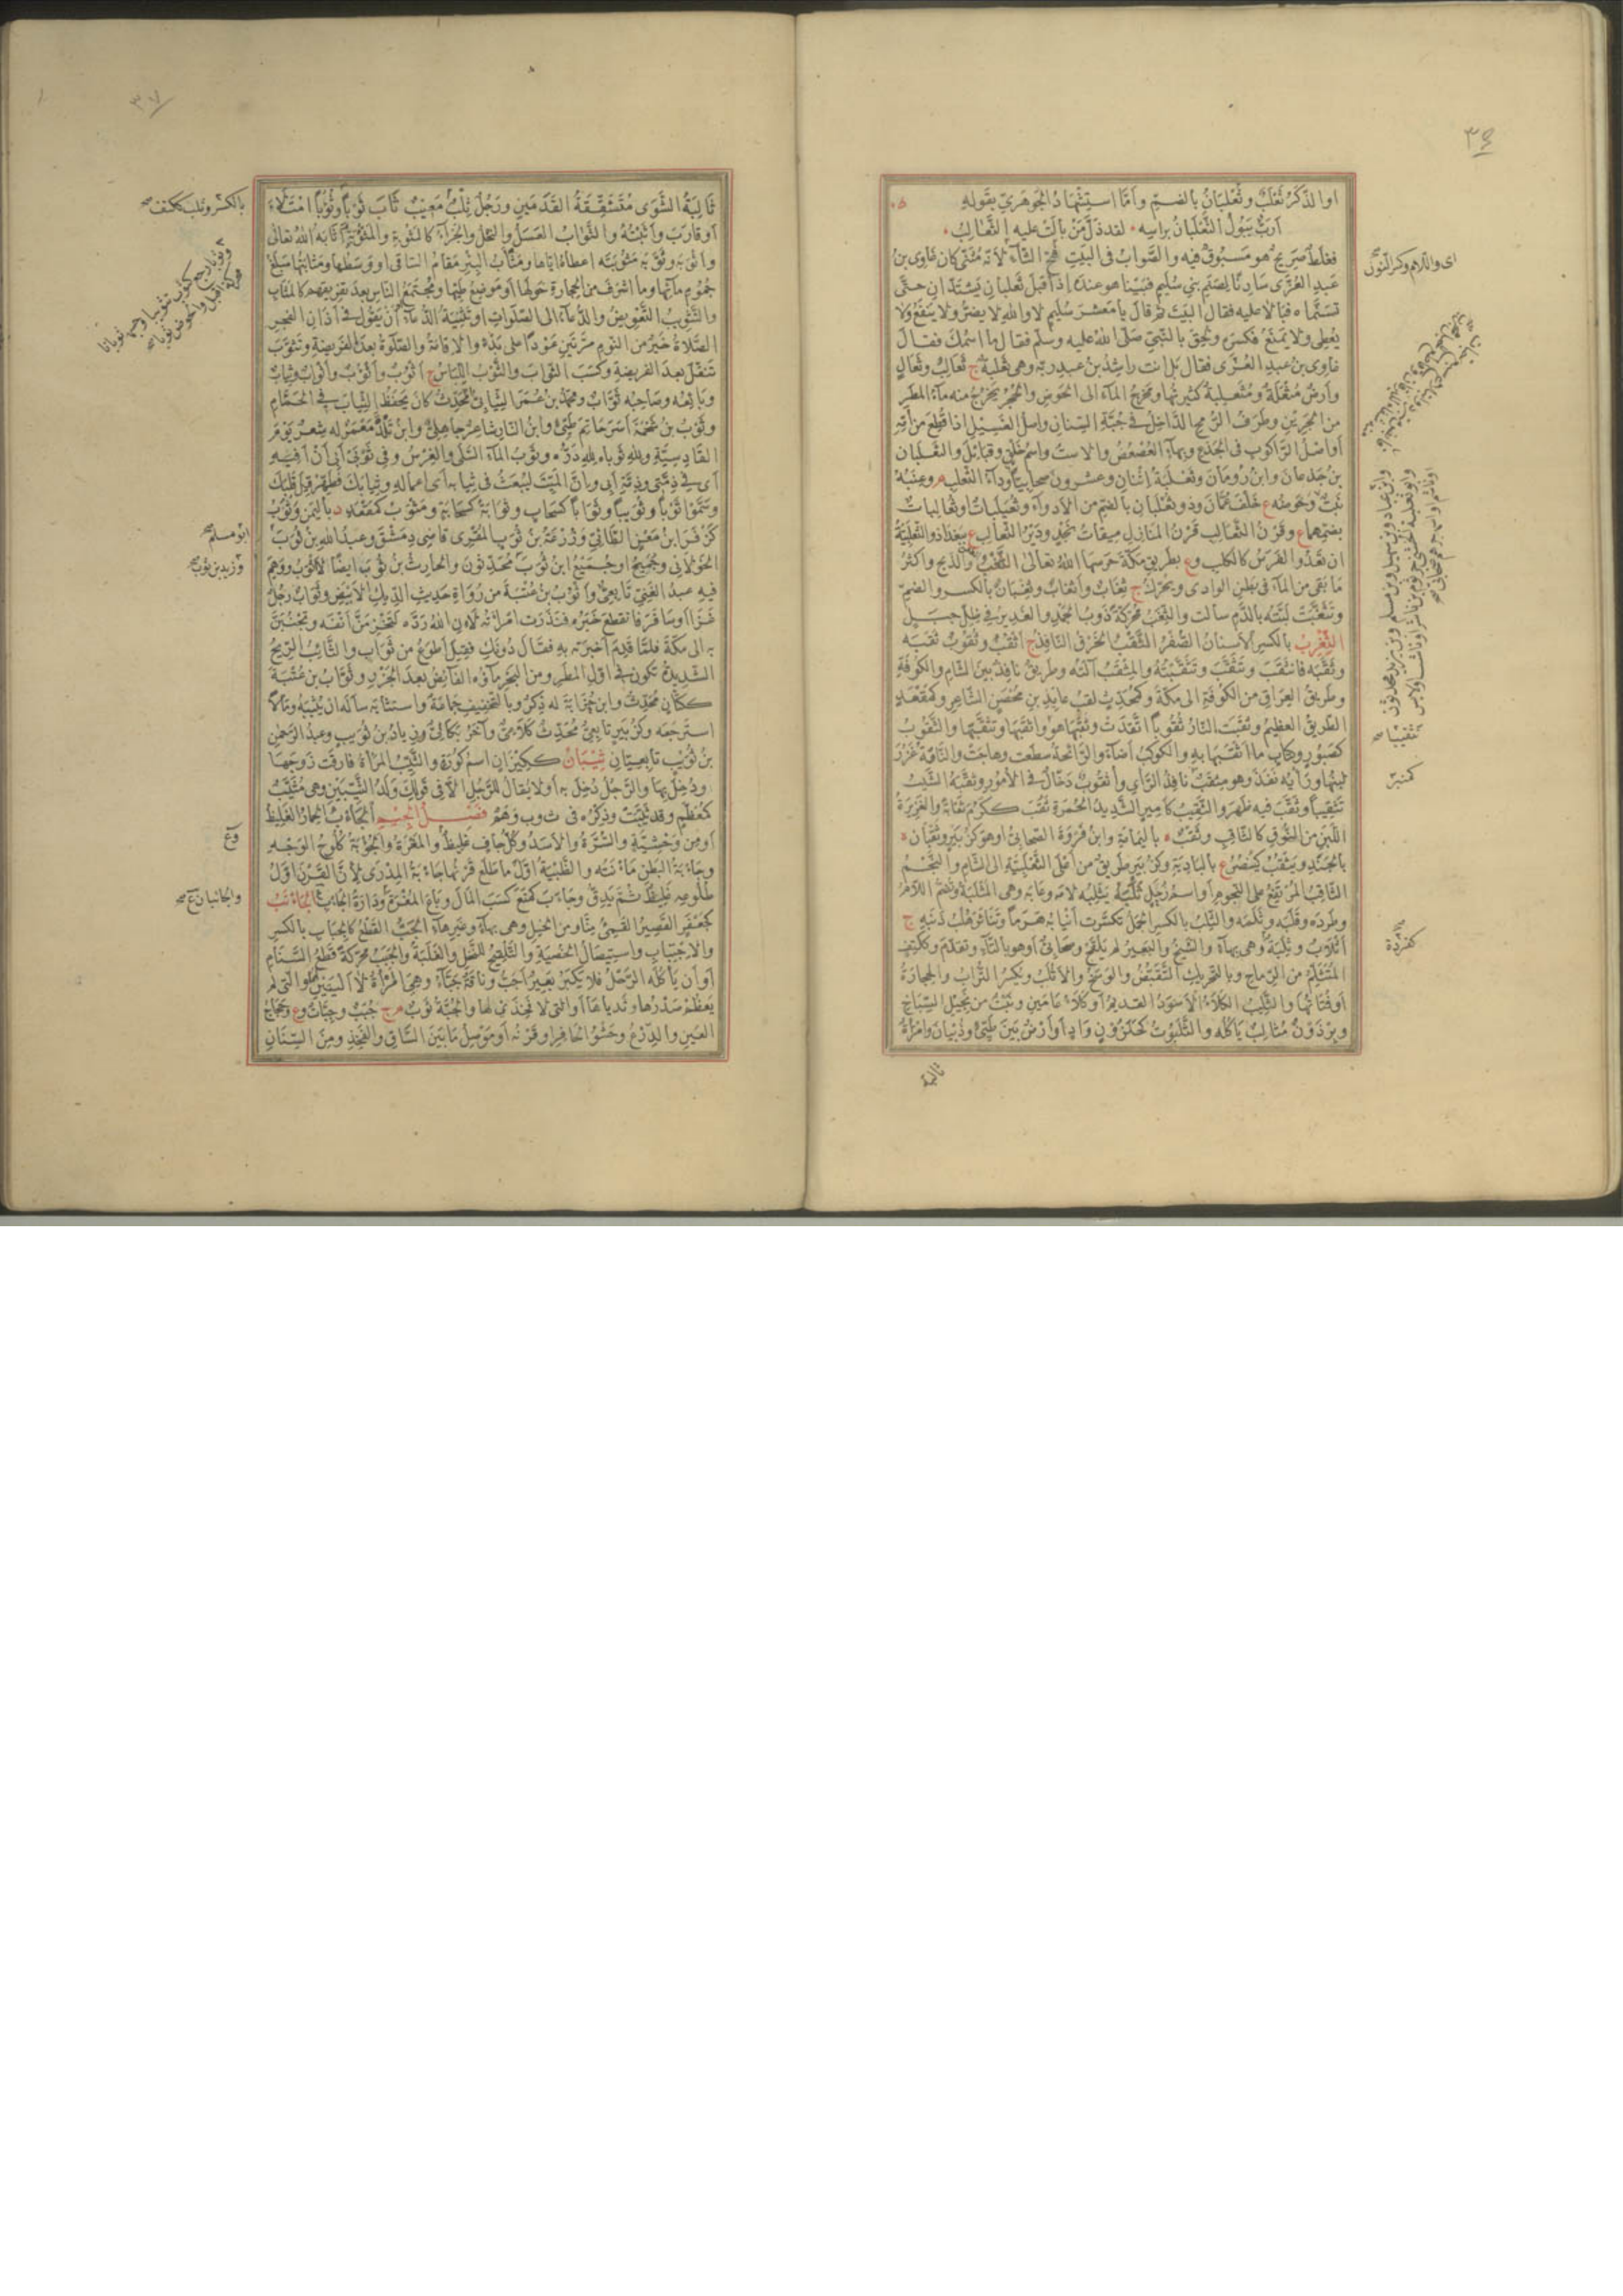 او الذَّكَرُ ثَعْلَبٌ وثُعْلُبَانٌ بالضمّ وأمّا استِشْهادُ الجَوهَرِيّ بقَولهِ
أرَبٌّ يَبُولُ الثَّعْلَبَانُ برأسِه لقد ذَلَّ مَنْ بالَتْ عليه الثَّعَالِبُ
فغلطٌ صَرِيحٌ هو مَسبُوقٌ فيه والصَّوابُ فى البَيتِ فَتحُ الثّآءِ لأنّه مُثَنًّى كان غاوِى بنُ
عَبدِ العُزّى سادِنًا لِصَنَمِ بنى سُلَيمٍ فبَينَا هو عندَه إذ أقبَلَ ثَعلبانِ يَشتَدّانِ حتّى
تسَنَّماه فبَالا عليه فقال البَيتَ ثم قال يا مَعشَرَ سُلَيمٍ لا واللهِ لا يضُرُّ ولا ينفَعُ ولا
يُعطِى ولا يَمنَعُ فكسَرَه ولَحِقَ بالنّبِيّ صَلّى اللهُ عليه وسلّم فقال ما اسمُك فقال
غاوِى بنُ عبدِ العُزّى فقال بل انت راشِدُ بنُ عبدِ ربّه وهى ثَعلبةٌ ج ثَعالِبُ وثَعالٍ
وأرضٌ مُثعِلَةٌ ومُثَعلِبةٌ كثيرتُها ومَخرَجُ المآءِ الى الحَوضِ والجُحرُ يَخرُجُ منه مآءُ المطَرِ
من الجَرِينِ وطَرَفُ الرُّمحِ الدّاخِلُ فى جُبّةِ السِّنانِ واصلُ الفَسِيلِ اذا قُطِعَ من أُمِّهِ
أو أصلُ الرّاكُوبِ فى الجِذعِ وبهآءٍ العُصعُصُ والاستُ واسمُ خَلقٍ وقبائِلُ والثَّعلَبانِ
بنُ جَدعآءَ وابنُ رُومانَ وثَعلبةُ اثنانِ وعشرون صحابيّاً ودآءُ الثَّعلبِ م وعِنَبُهُ
نَبتٌ وحَوضُه ع خَلفَ عُمَانَ وذو ثُعلُبانِ بالضمّ من الأذوآءِ وثُعَيلِباتٌ وثُعالِباتٌ
بضمِّهما ع وقَرنُ الثّعالبِ قَرنُ المنازِلِ مِيقاتُ نَجدٍ ودَيرُ الثّعالِبِ ع ببَغدادَ والثَّعلَبيّةُ
ان يَعدُوَ الفَرَسُ كالكلبِ وع بطرِيقِ مكّةَ حرَسها اللهُ تعالى الثَّغبُ والذبحُ واكثرُ
ما بقِىَ من المآءِ فى بَطنِ الوادى ويُحرَّكُ ج ثِغابٌ وأثغابٌ وثِغبانٌ بالكسر والضمّ
وتثغّبَتْ لِثَتُه بالدّم سالت والثَّغَبُ محرّكةً ذَوبُ الجَمدِ والغَدِيرُ فى ظِلِّ جبَلٍ
الثِّغرِبُ بالكسر الأسنانُ الصُّفرُ الثَّقبُ الخَرقُ النّافِذُ ج أثقُبٌ وثُقُوبٌ ثقَبَه
وثَقّبَه فانثقَبَ وتَثَقّبَ وتَثَقّبتُه والمِثقَبُ آلتُه وطرِيقٌ نافِذٌ بينَ الشّامِ والكُوفَةِ
وطَرِيقُ العِراقِ من الكُوفةِ الى مكّةَ وكمُحَدِّثٍ لقبُ عايِذِ بنِ مُحصَنٍ الشّاعرِ وكمَقعَدٍ
الطريقُ العظيمُ وثقَبَتِ النّارُ ثُقُوباً اتّقدَتْ وثَقّبها هو وأثقَبها وتثَقّبها والثَّقُوبُ
كصَبُورٍ وكِتابٍ ما أثقَبَها به والكَوكَبُ أضآءَ والرّائحةُ سطَعَت وهاجَتْ والنّاقةُ غَزُرَ
لبنُها ورأيُه نفَذَ وهو مِثقَبٌ نافِذُ الرّأىِ وأُثقُوبٌ دخّالٌ فى الأمُورِ وثقّبَهُ الشّيبُ
تَثقِيباً وثقّبَ فيه ظهَرَ والثَّقِيبُ كأمِيرٍ الشّديدُ الحُمرَةِ ثَقُبَ ككرُمَ ثَقابةً والغَزِيرةُ
اللّبَنِ من النُّوقِ كالثّاقِبِ وثَقبٌ ة باليَمامةِ وابنُ فَروَةَ الصّحابيُّ او هو كزُبَيرٍ وثَقبانُ ة
بالجَنَدِ ويَثقُبُ كينصُرُ ع بالبادِيةِ وكزُبَيرٍ طريقٌ من أعلى الثّعلبيّةِ الى الشّامِ والنّجمُ
الثّاقِبُ المُرتفِعُ على النّجومِ أو اسمُ زُحَلٍ ثلَبَهُ يثلِبُه لامَه وعابَه وهى المَثلَبةُ وتُضَمّ اللّامُ
وطردَه وقلَبَه وثلَمَه والثِّلبُ بالكسر الجمَلُ تكسّرَت أنيابُه هَرَماً وتَناثَرَ هُلبُ ذَنَبِهِ ج
أثلابٌ وثِلَبةٌ وهى بهآءٍ والشيخُ والبَعيرُ لم يُلقِح وصحابيٌّ او هو بالتّآءِ وتقدّم وككتِفٍ
المُتَثلِّمُ من الرّماحِ وبالتّحريكِ التَّقبُّضُ والوَسَخُ والأثلَبُ ويُكسَرُ التُّرابُ والحِجارةُ
أو فُتاتُها والثَّلِيبُ الكَلأُ الأسوَدُ القديمُ أو كَلأُ عامَينِ ونَبتٌ من نَجِيلِ السِّباخِ
وبِرذَونٌ مُثالِبٌ يأكُلُه والثَّلَبُوتُ كحَلَزُونٍ وادٍ أو أرضٌ بينَ طيّئٍ وذُبيانَ وامرأةٌ
ثالبة
اى واللام وكسر النون
تثقيبا صح
كمنبر
كفرِدة
٣٧
ثالِبَةُ الشَّوَى مُتَشَقِّقَةُ القَدَمَينِ ورَجُلٌ ثِلبٌ مَعِيبٌ ثابَ ثَوباً وثُؤُوباً امتَلأَ
أو قارَبَ وأثَبتُهُ والثَّوابُ العَسَلُ والنّحلُ والجَزآءُ كالمَثُوبةِ والمَثوَبةِ أثابَهُ اللهُ تعالى
وأثوَبَه وثوّبَه مَثُوبتَه أعطاهُ ايّاها ومَثابُ البِئرِ مَقامُ السّاقى أو وَسَطُها ومَثابتُها مَبلَغُ
جُمُومِ مآئِها وما أشرَفَ من الحِجارةِ حَولَها أو مَوضِعُ طَيِّها ومُجتَمَعُ النّاسِ بعدَ تفَرُّقِهم كالمَثابِ
والتّثوِيبُ التّعوِيضُ والدّعآءُ الى الصّلَواتِ أو تَثنِيةُ الدّعآءِ أو أن يَقُولَ فى أذانِ الفَجرِ
الصّلاةُ خَيرٌ من النّومِ مرّتَينِ عَوداً على بَدءٍ والإقامَةُ والصّلوةُ بعدَ الفَريضةِ وتَثوّبَ
تنفّلَ بعدَ الفريضةِ وكسَبَ الثّوابَ والثّوبُ اللِّباسُ ج أثوُبٌ وأثؤُبٌ وأثوابٌ وثِيابٌ
وبائِعُه وصاحِبُه ثَوّابٌ ومحمّدُ بنُ عُمَرَ الثِّيابِيُّ المُحدِّثُ كان يحفَظُ الثِّيابَ فى الحَمّامِ
وثَوبُ بنُ شَحمةَ أسَرَ حاتِمَ طيّئٍ وابنُ النّارِ شاعِرٌ جاهِليٌّ وابنُ تَلدةَ مُعَمَّرٌ له شِعرٌ يَومَ
القادِسيّةِ وللهِ ثَوباه لِلّهِ دَرُّه وثَوبُ المآءِ السَّلَى والغِرسُ وفى ثَوبَى أبى أن أفِيَه
أى فى ذِمّتى وذِمّةِ أبى وإنّ المَيّتَ ليُبعَثُ فى ثيابِه أى أعمالِهِ وثِيابَكَ فطهِّر قيل قَلبَكَ
وسمَّوا ثَوباً وثُوَيباً وثَواباً كسَحابٍ وثَوابةً كسَحابَةٍ ومَثوَبٌ كمَقعَدٍ د باليَمَن وثُوَبُ
كزُفَرَ ابنُ مَعنٍ الطّائيُّ وزُرعةُ بنُ ثُوَبٍ المُقرِى قاضِى دِمَشقَ وعبدُ اللهِ بنُ ثُوَبٍ
الخَولانِىّ وجُمَيحٌ أو جُمَيعُ ابنُ ثُوَبَ محدّثونَ والحارِثُ بنُ ثُوَبَ ايضًا لا أثوَبُ ووَهِمَ
فيهِ عبدُ الغَنِيِّ تابِعِيٌّ وأثوَبُ بنُ عُتبةَ من رُواةِ حَديثِ الدِّيكِ الأبيَضِ وثَوابٌ رَجُلٌ
غَزا أو سافَرَ فانقطعَ خَبَرُه فنذَرَت امرأتُه لئن اللهُ رَدّه لتَخرِمَنَّ أنفَه وتجنُبَنَّ
به الى مكّةَ فلمّا قَدِمَ أخبَرَته به فقال دُونَكِ فقِيلَ أطوَعُ من ثَوابٍ والثّائِبُ الرّيحُ
الشّديدةُ تكونُ فى أوّلِ المطَرِ ومن البَحرِ مآؤُه الفائِضُ بعدَ الجَزرِ وثَوّابُ بنُ عُتبَةَ
ككتّانٍ محدِّثٌ وابنُ حُزابَةَ له ذِكرٌ وبالتّخفيفِ جماعةٌ واستثابَه سألَه أن يُثِيبَه ومالًا
استرجَعَه وكزُبَيرٍ تابِعِيٌّ محَدِّثٌ كَلاعِيٌّ وآخَرُ بَكالِيٌّ وزِيادُ بنُ ثُوَيبٍ وعبدُ الرّحمنِ
بنُ ثُوَيبٍ تابِعِيّانِ ثِيبانُ ككِيزانٍ اسمُ كُورَةٍ والثَّيِّبُ المَرأةُ فارقَت زَوجَها
أو دُخِلَ بها والرّجُلُ دُخِلَ به أو لا يُقالُ للرّجُلِ الّا فى قَولِكَ وَلَدُ الثّيِّبَينِ وهى مُثَيَّبٌ
كمُعظَّمٍ وقد ثَيّبَتْ وذِكرُه فى ث و ب وَهَمٌ فَصلُ الجِيمِ الجَأبُ الحِمارُ الغَليظُ
أو من وَحشِيّهِ والسُّرّةُ والأسَدُ وكلُّ جافٍ غَليظٌ والمَغرَةُ والجُؤبةُ كُلُوحُ الوَجهِ
وجَأبةُ البَطنِ مأنَتُه والظَّبيةُ أوّلُ ما طَلَعَ قَرنُها جأبةُ المِدرَى لأنّ القَرنَ أوّلَ
طُلُوعِهِ غَليظٌ ثم يَدِقُّ وجأبَ كمنَعَ كسَبَ المالَ وباعَ المَغرَةَ ودارَةُ الجَأبِ ع الجَأنَبُ
كجَعفَرٍ القَصيرُ القَمِىءُ منّا ومن الخيلِ وهى بهآءٍ وبغَيرِ هآءٍ الجَبُّ القَطعُ كالجِبابِ بالكسرِ
والاجتِبابِ واستِيصالُ الخُصيَةِ والتَّلقِيحُ للنّخلِ والغَلَبةُ والجَبَبُ محرّكةً قَطعُ السَّنامِ
أو أن يأكُلَه الرَّحلُ فلا يَكبَرُ بَعيرٌ أجَبُّ وناقةٌ جَبّآءُ وهى المَرأةُ لا أليَتَينِ لها أو التى لم
يَعظُم صَدرُها وثَدياها أو التى لا فَخِذَىْ لها والجُبّةُ ثَوبٌ م ج جُبَبٌ وجِبابٌ وع وحَجاجُ
العَينِ والدِّرعُ وحَشوُ الحافِرِ أو قَرنُه أو مَوصِلُ ما بَينَ السّاقِ والفَخِذِ ومِنَ السِّنانِ
بالكسر وثلب ككتف صح
ابو مسلم صح
وزيد بن ثوب صح
وع
والجانبان ع صح